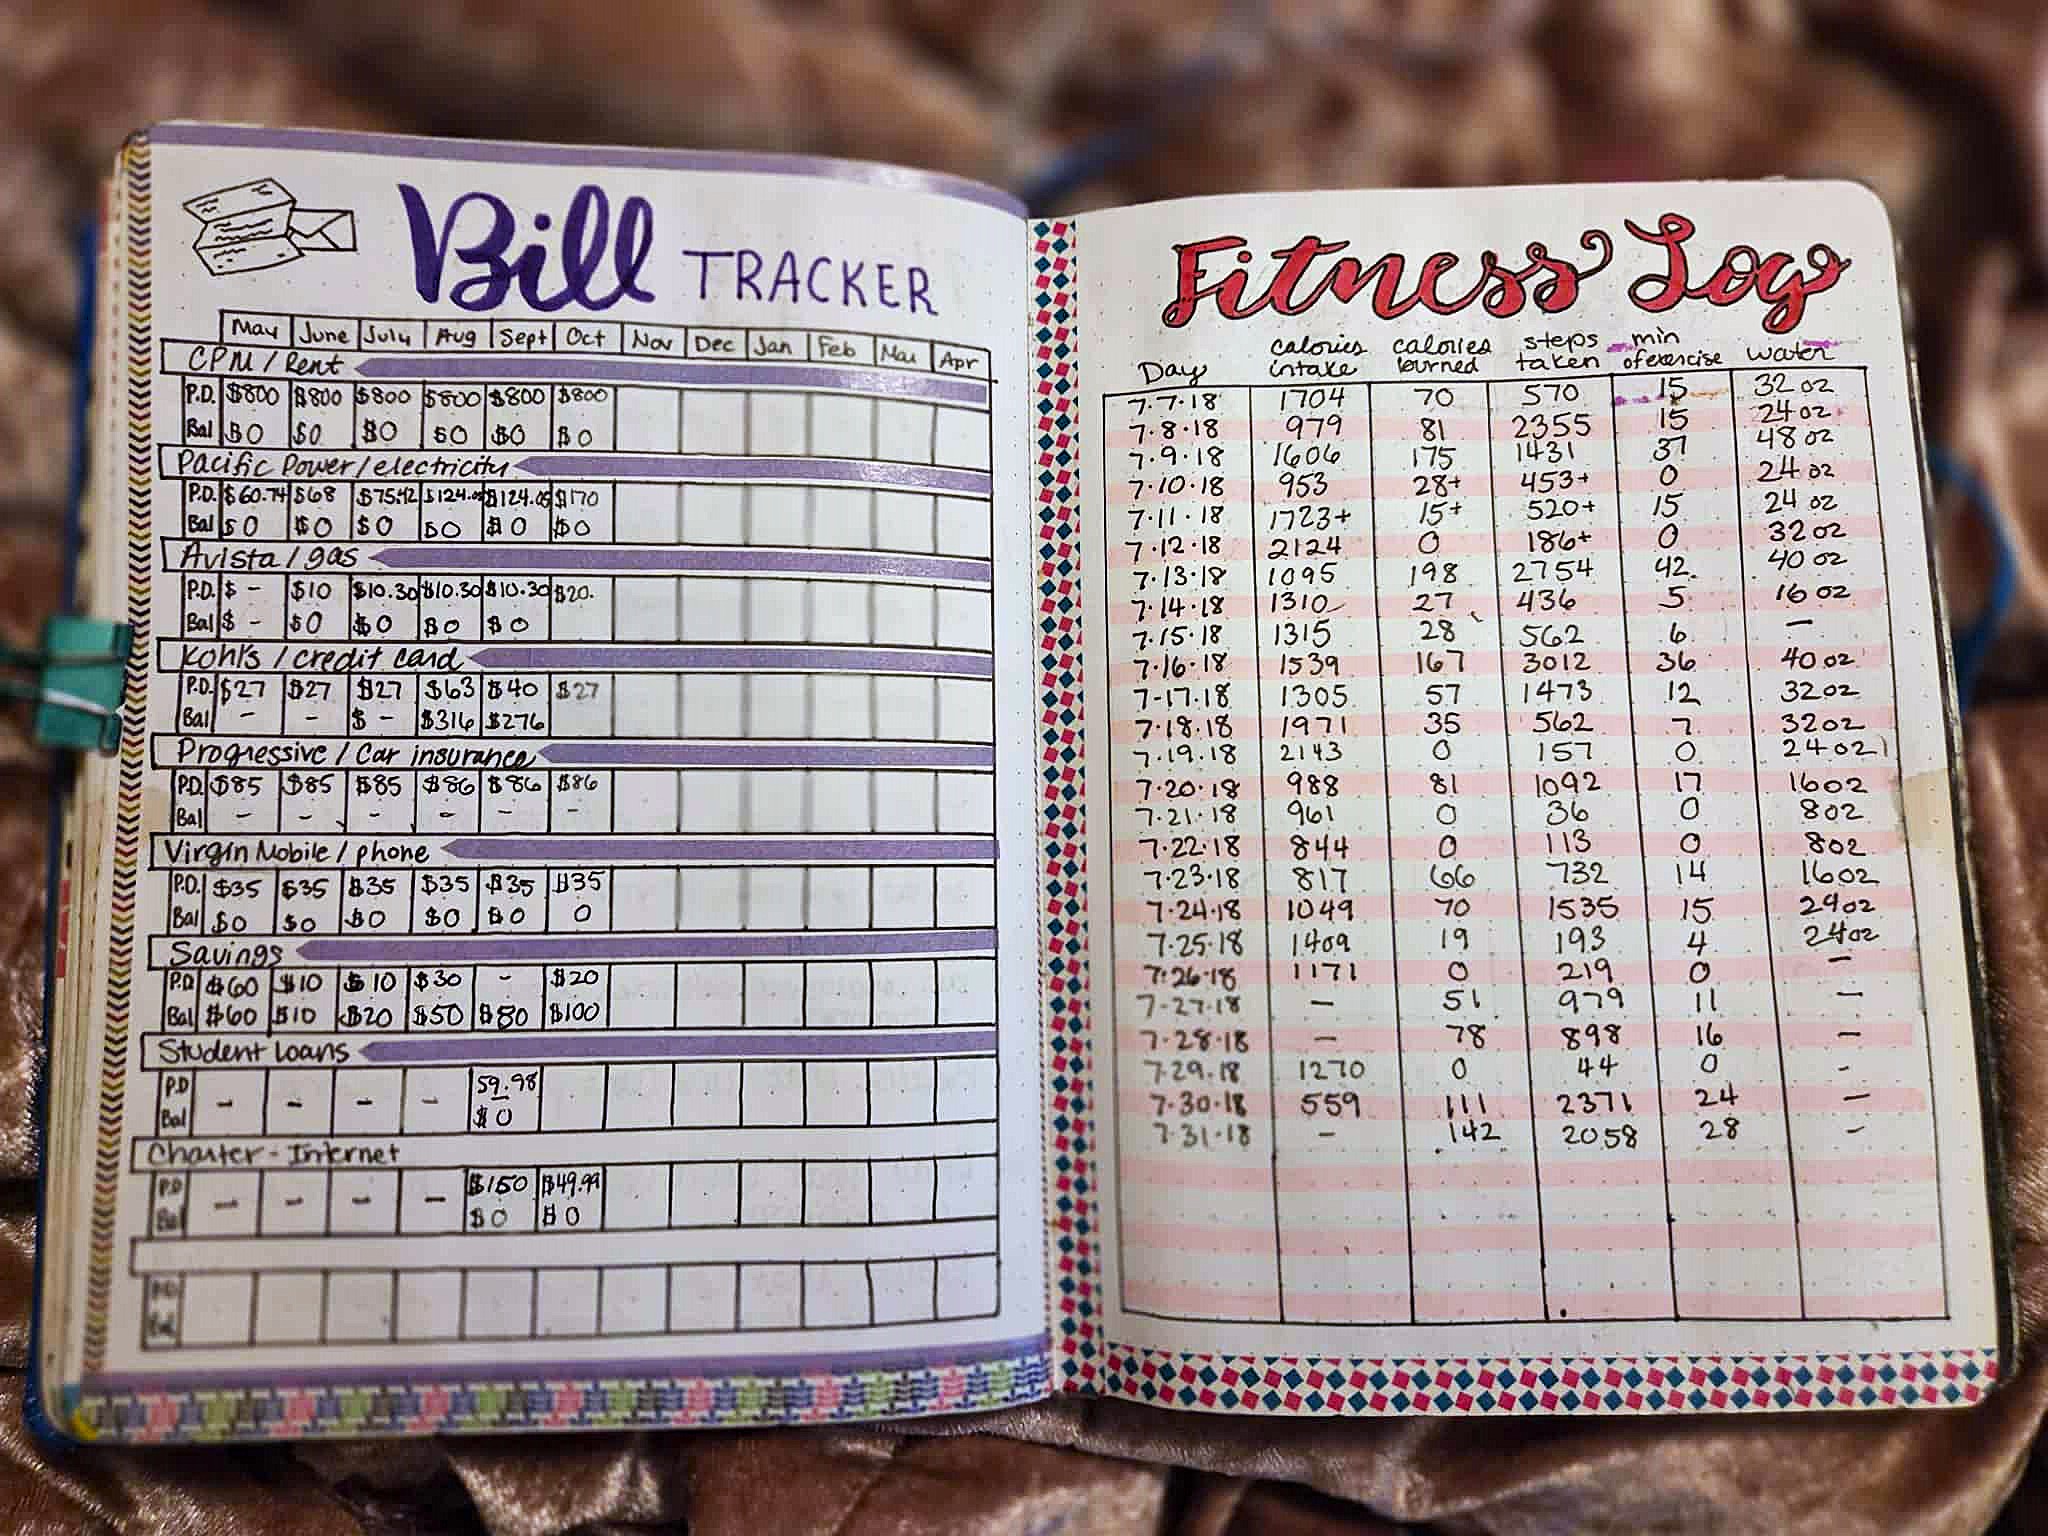 Bill TRACKER
May June July Aug Sept Oct Nov Dec Jan Feb Mar Apr
CPM / Rent
P.D. $800 $800 $800 $800 $800 $800
Bal $0 $0 $0 $0 $0 $0
Pacific Power / electricity
P.D. $60.74 $68 $75.42 $124.05 $124.05 $170
Bal $0 $0 $0 $0 $0 $0
Avista / gas
P.D. $ - $10 $10.30 $10.30 $10.30 $20.
Bal $ - $0 $0 $0 $0
Kohl's / credit card
P.D. $27 $27 $27 $63 $40 $27
Bal - - $ - $316 $276
Progressive / Car insurance
P.D. $85 $85 $85 $86 $86 $86
Bal - - - - - -
Virgin Mobile / phone
P.D. $35 $35 $35 $35 $35 $35
Bal $0 $0 $0 $0 $0 0
Savings
P.D. $60 $10 $10 $30 - $20
Bal $60 $10 $20 $50 $80 $100
Student Loans
P.D - - - - 59.98
Bal $0
Charter - Internet
P.D - - - - $150 $49.99
Bal $0 $0
P.D.
Bal
Fitness Log
Day calories intake calories burned steps taken min of exercise water
7.7.18 1704 70 570 15 32 oz
7.8.18 979 81 2355 15 24 oz
7.9.18 1606 175 1431 37 48 oz
7.10.18 953 28+ 453+ 0 24 oz
7.11.18 1723+ 15+ 520+ 15 24 oz
7.12.18 2124 0 186+ 0 32 oz
7.13.18 1095 198 2754 42 40 oz
7.14.18 1310 27 436 5 16 oz
7.15.18 1315 28 562 6 -
7.16.18 1539 167 3012 36 40 oz
7-17.18 1305 57 1473 12 32 oz
7.18.18 1971 35 562 7 32 oz
7.19.18 2143 0 157 0 24 oz
7.20.18 988 81 1092 17 16 oz
7.21.18 961 0 36 0 8 oz
7.22.18 844 0 113 0 8 oz
7.23.18 817 66 732 14 16 oz
7.24.18 1049 70 1535 15 24 oz
7.25.18 1409 19 193 4 24 oz
7.26.18 1171 0 219 0 -
7-27.18 - 51 979 11 -
7.28.18 - 78 898 16 -
7.29.18 1270 0 44 0 -
7.30.18 559 111 2371 24 -
7.31.18 - 142 2058 28 -